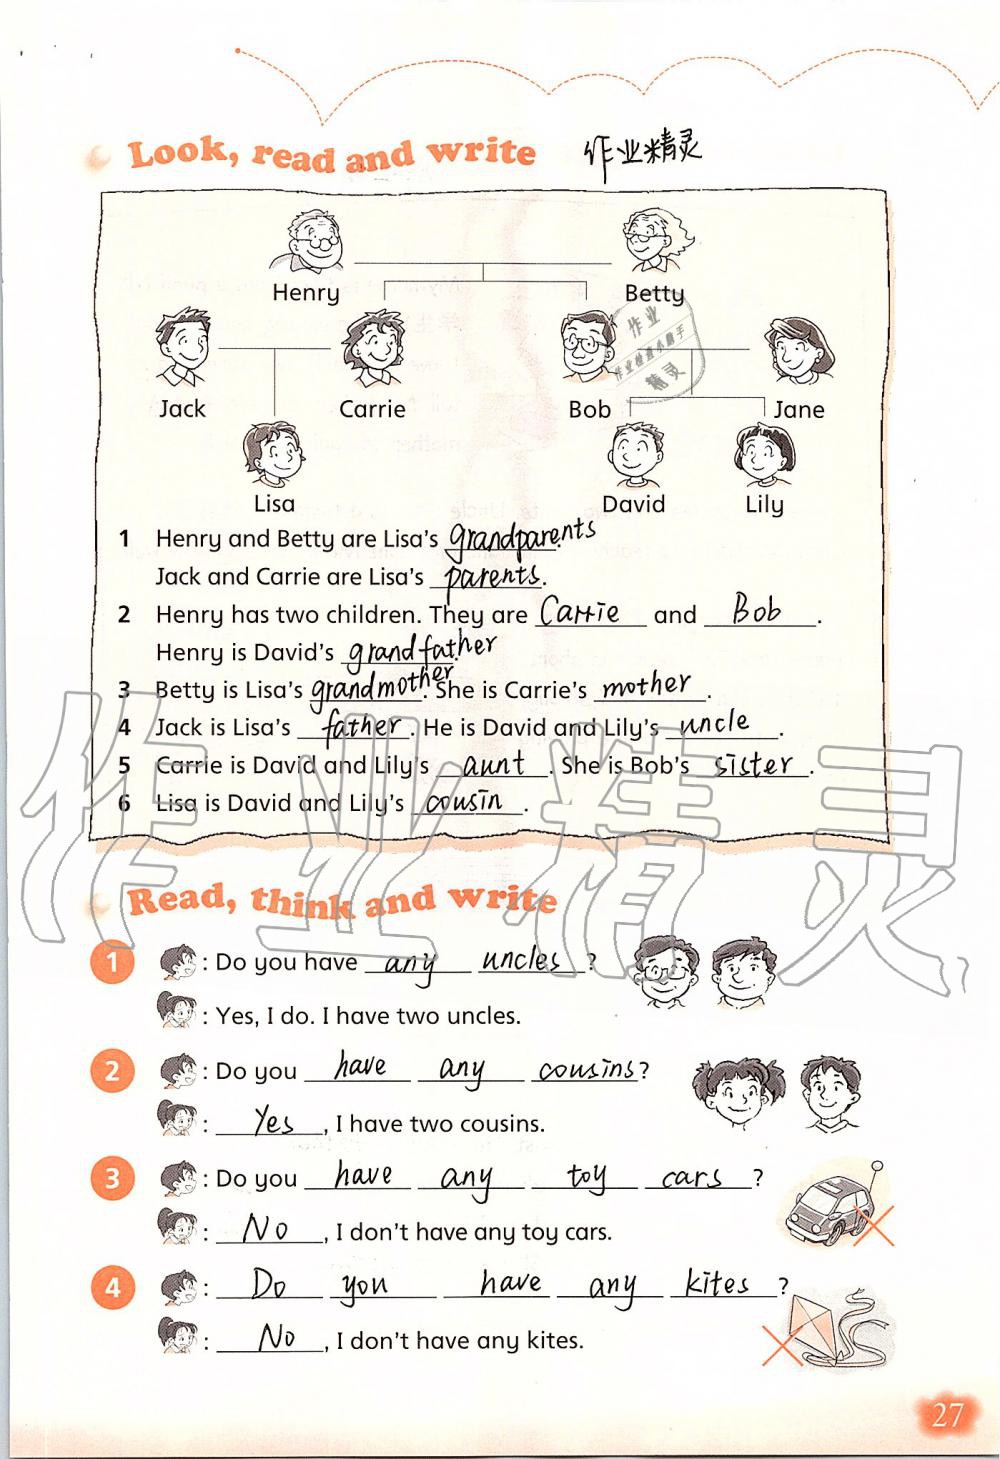 Look, read and write 作业精灵
Henry Betty
作业
作业检查小助手
精灵
Jack Carrie Bob Jane
Lisa David Lily
1 Henry and Betty are Lisa's grandparents.
Jack and Carrie are Lisa's parents.
2 Henry has two children. They are Carrie and Bob.
Henry is David's grandfather.
3 Betty is Lisa's grandmother. She is Carrie's mother.
4 Jack is Lisa's father. He is David and Lily's uncle.
5 Carrie is David and Lily's aunt. She is Bob's sister.
6 Lisa is David and Lily's cousin.
作业精灵
Read, think and write
1 : Do you have any uncles?
: Yes, I do. I have two uncles.
2 : Do you have any cousins?
: Yes, I have two cousins.
3 : Do you have any toy cars?
: No, I don't have any toy cars.
4 : Do you have any kites?
: No, I don't have any kites.
27